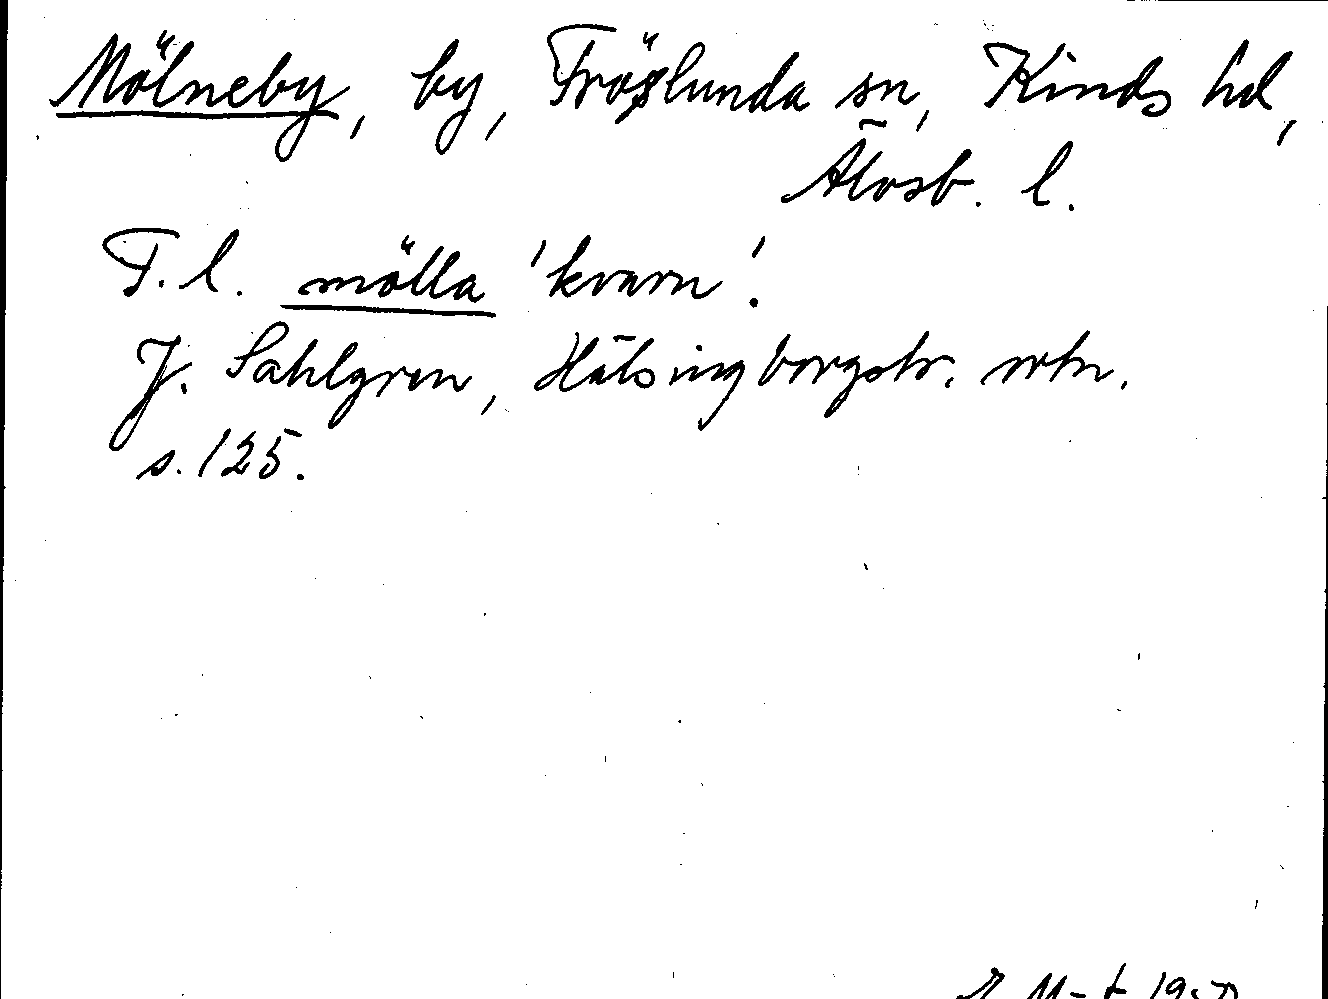 Mölneby, by, Fröslunda sn, Kinds hd,
Älvsb. l.
T. l. mölla 'kvarn'.
J. Sahlgren, Hälsingborgstr. ortn.
s. 125.